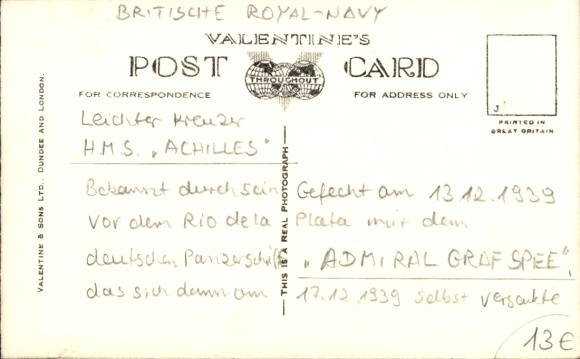 BRITISCHE ROYAL-NAVY
VALENTINE'S
POST CARD
THROUGHOUT
FOR CORRESPONDENCE
FOR ADDRESS ONLY
PRINTED IN
GREAT BRITAIN
Leichter Kreuzer
H.M.S. „ACHILLES"
Bekannt durch sein Gefecht am 13.12.1939
vor dem Rio de la Plata mit dem
deutschen Panzerschiff „ADMIRAL GRAF SPEE",
das sich dann am 17.12.1939 selbst versenkte
VALENTINE & SONS LTD., DUNDEE AND LONDON.
THIS IS A REAL PHOTOGRAPH
13€